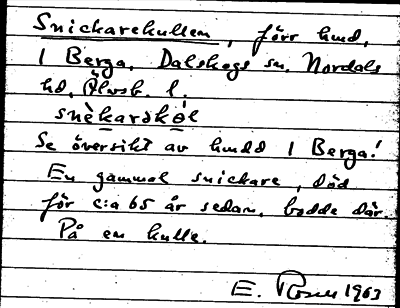 Snickarekullen, förr hmd,
1 Berga, Dalskogs sn, Nordals
hd, Älvsb. l.
snèkarskø̀l
Se översikt av hmdd 1 Berga!
En gammal snickare, död
för c:a 65 år sedan, bodde där
På en kulle.
E. Rosen 1963